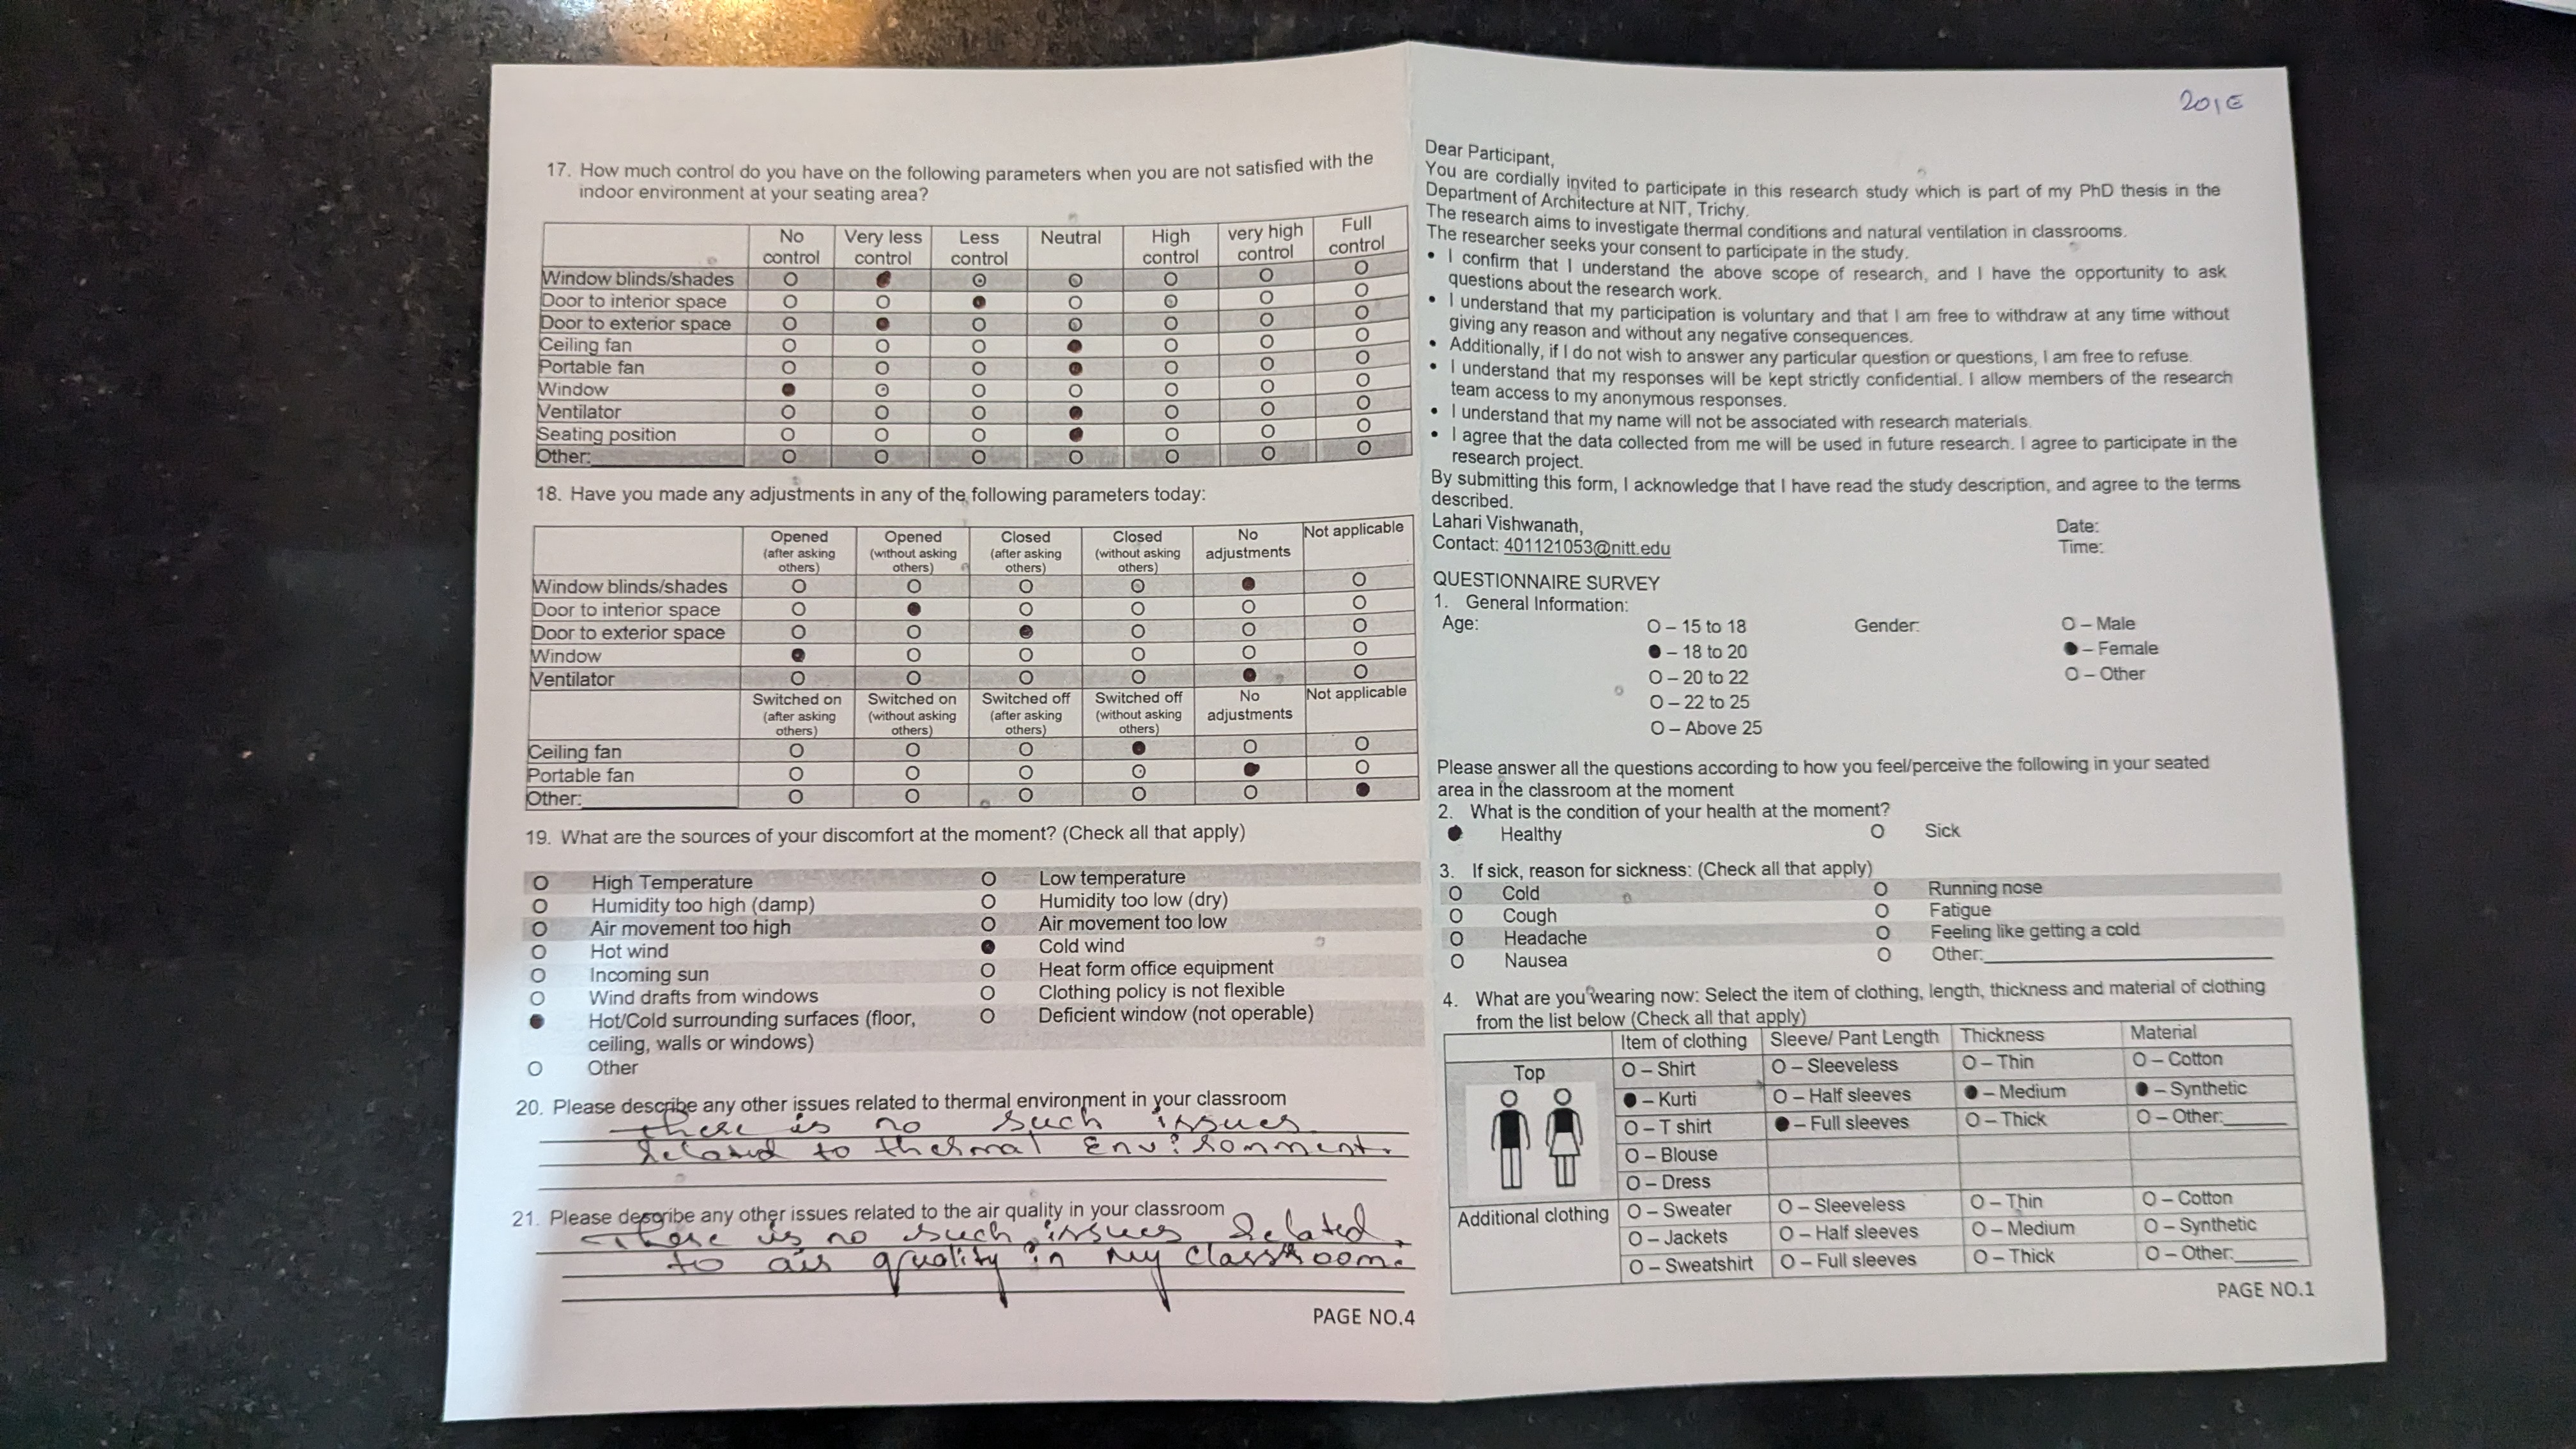 17. How much control do you have on the following parameters when you are not satisfied with the
indoor environment at your seating area?
No control Very less control Less control Neutral High control very high control Full control
Window blinds/shades O ● O O O O O
Door to interior space O O ● O O O O
Door to exterior space O ● O O O O O
Ceiling fan O O O ● O O O
Portable fan O O O ● O O O
Window ● O O O O O O
Ventilator O O O ● O O O
Seating position O O O ● O O O
Other:________ O O O O O O O
18. Have you made any adjustments in any of the following parameters today:
Opened (after asking others) Opened (without asking others) Closed (after asking others) Closed (without asking others) No adjustments Not applicable
Window blinds/shades O O O O ● O
Door to interior space O ● O O O O
Door to exterior space O O ● O O O
Window ● O O O O O
Ventilator O O O O ● O
Switched on (after asking others) Switched on (without asking others) Switched off (after asking others) Switched off (without asking others) No adjustments Not applicable
Ceiling fan O O O ● O O
Portable fan O O O O ● O
Other:________ O O O O O ●
19. What are the sources of your discomfort at the moment? (Check all that apply)
O High Temperature O Low temperature
O Humidity too high (damp) O Humidity too low (dry)
O Air movement too high O Air movement too low
O Hot wind ● Cold wind
O Incoming sun O Heat form office equipment
O Wind drafts from windows O Clothing policy is not flexible
● Hot/Cold surrounding surfaces (floor, O Deficient window (not operable)
ceiling, walls or windows)
O Other
20. Please describe any other issues related to thermal environment in your classroom
there is no such issues
related to thermal Environment.
21. Please describe any other issues related to the air quality in your classroom
There is no such issues related
to air quality in my classroom.
PAGE NO.4
201E
Dear Participant,
You are cordially invited to participate in this research study which is part of my PhD thesis in the
Department of Architecture at NIT, Trichy.
The research aims to investigate thermal conditions and natural ventilation in classrooms.
The researcher seeks your consent to participate in the study.
• I confirm that I understand the above scope of research, and I have the opportunity to ask
questions about the research work.
• I understand that my participation is voluntary and that I am free to withdraw at any time without
giving any reason and without any negative consequences.
• Additionally, if I do not wish to answer any particular question or questions, I am free to refuse.
• I understand that my responses will be kept strictly confidential. I allow members of the research
team access to my anonymous responses.
• I understand that my name will not be associated with research materials.
• I agree that the data collected from me will be used in future research. I agree to participate in the
research project.
By submitting this form, I acknowledge that I have read the study description, and agree to the terms
described.
Lahari Vishwanath, Date:
Contact: 401121053@nitt.edu Time:
QUESTIONNAIRE SURVEY
1. General Information:
Age: O – 15 to 18 Gender: O – Male
● – 18 to 20 ● – Female
O – 20 to 22 O – Other
O – 22 to 25
O – Above 25
Please answer all the questions according to how you feel/perceive the following in your seated
area in the classroom at the moment
2. What is the condition of your health at the moment?
● Healthy O Sick
3. If sick, reason for sickness: (Check all that apply)
O Cold O Running nose
O Cough O Fatigue
O Headache O Feeling like getting a cold
O Nausea O Other:________
4. What are you wearing now: Select the item of clothing, length, thickness and material of clothing
from the list below (Check all that apply)
Item of clothing Sleeve/ Pant Length Thickness Material
Top O – Shirt O – Sleeveless O – Thin O – Cotton
● – Kurti O – Half sleeves ● – Medium ● – Synthetic
O – T shirt ● – Full sleeves O – Thick O – Other:______
O – Blouse
O – Dress
Additional clothing O – Sweater O – Sleeveless O – Thin O – Cotton
O – Jackets O – Half sleeves O – Medium O – Synthetic
O – Sweatshirt O – Full sleeves O – Thick O – Other:______
PAGE NO.1